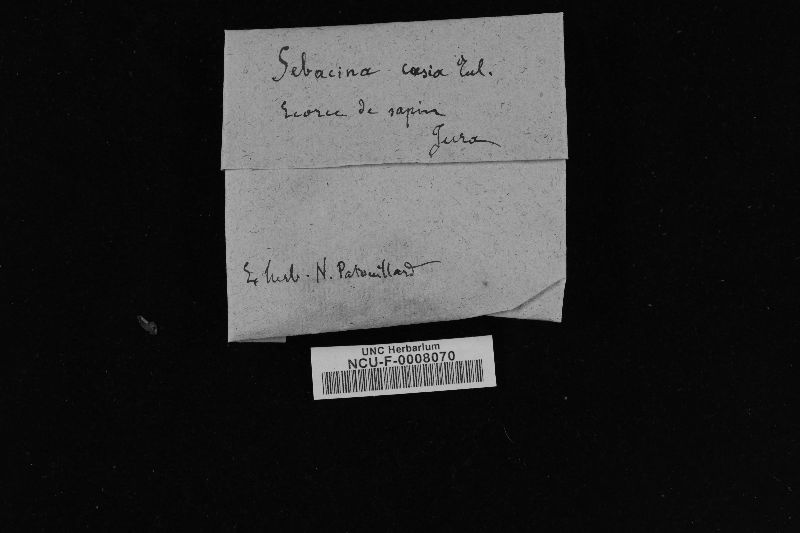 Sebacina cæsia Tul.
Ecorce de sapin
Jura
Ex herb. N. Patouillard
UNC Herbarium
NCU-F-0008070